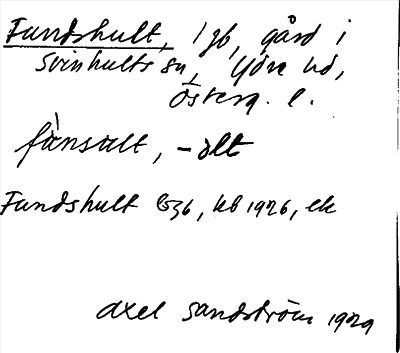 Fundshult, 1 gb, gård i
Svinhults sn, Ydre hd,
Österg. l.
fànsalt, -ålt
Fundshult 1536, kb 1926, ek
Axel Sandström 1929